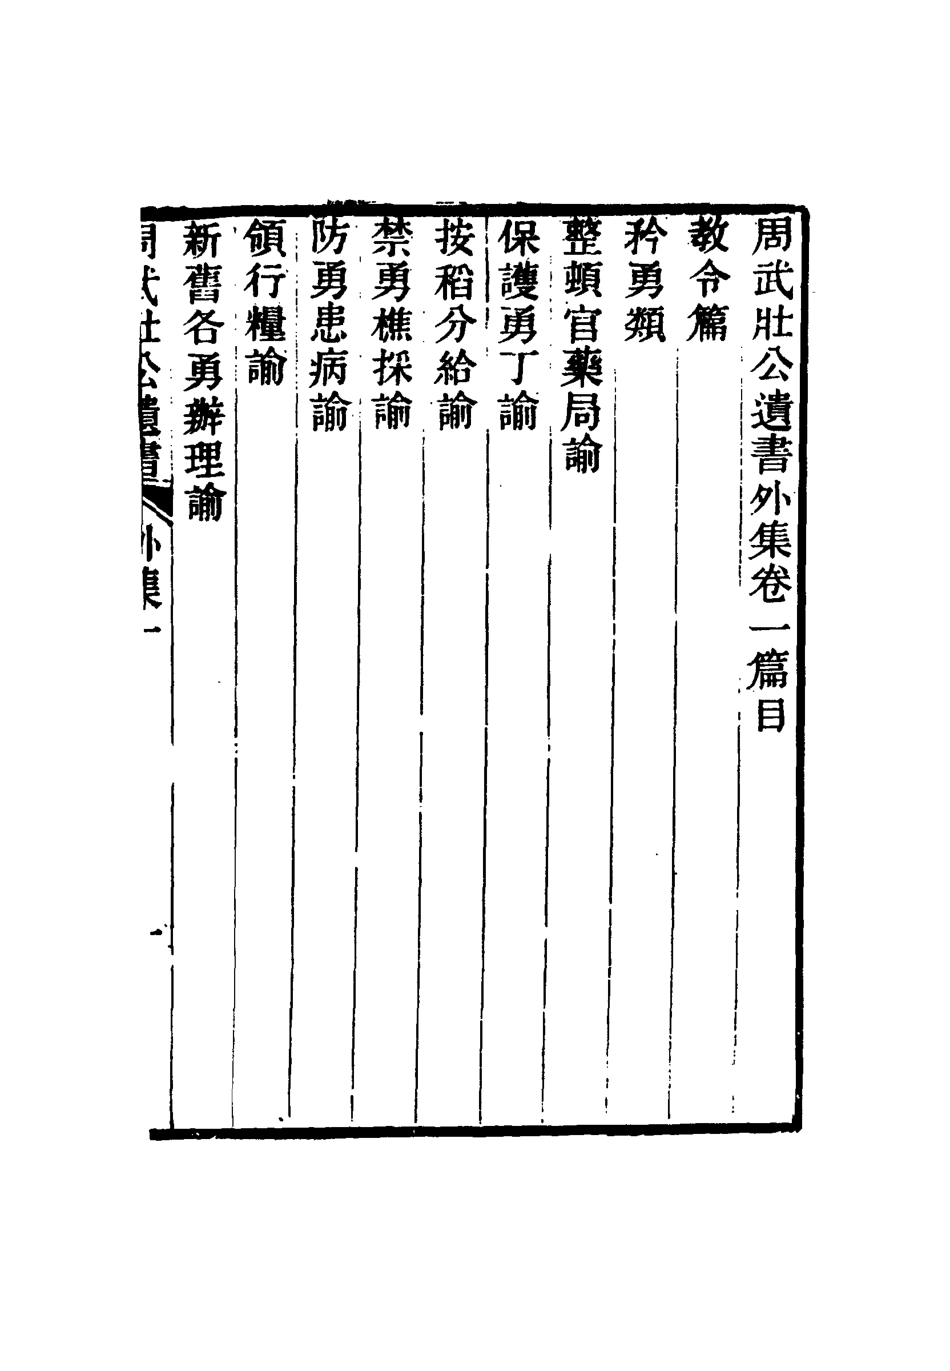 周武壯公遺書外集卷一篇目
教令篇
矜勇類
整頓官藥局諭
保護勇丁諭
按稻分給諭
禁勇樵採諭
防勇患病諭
領行糧諭
新舊各勇辦理諭
周武壯公遺書 外集一 一